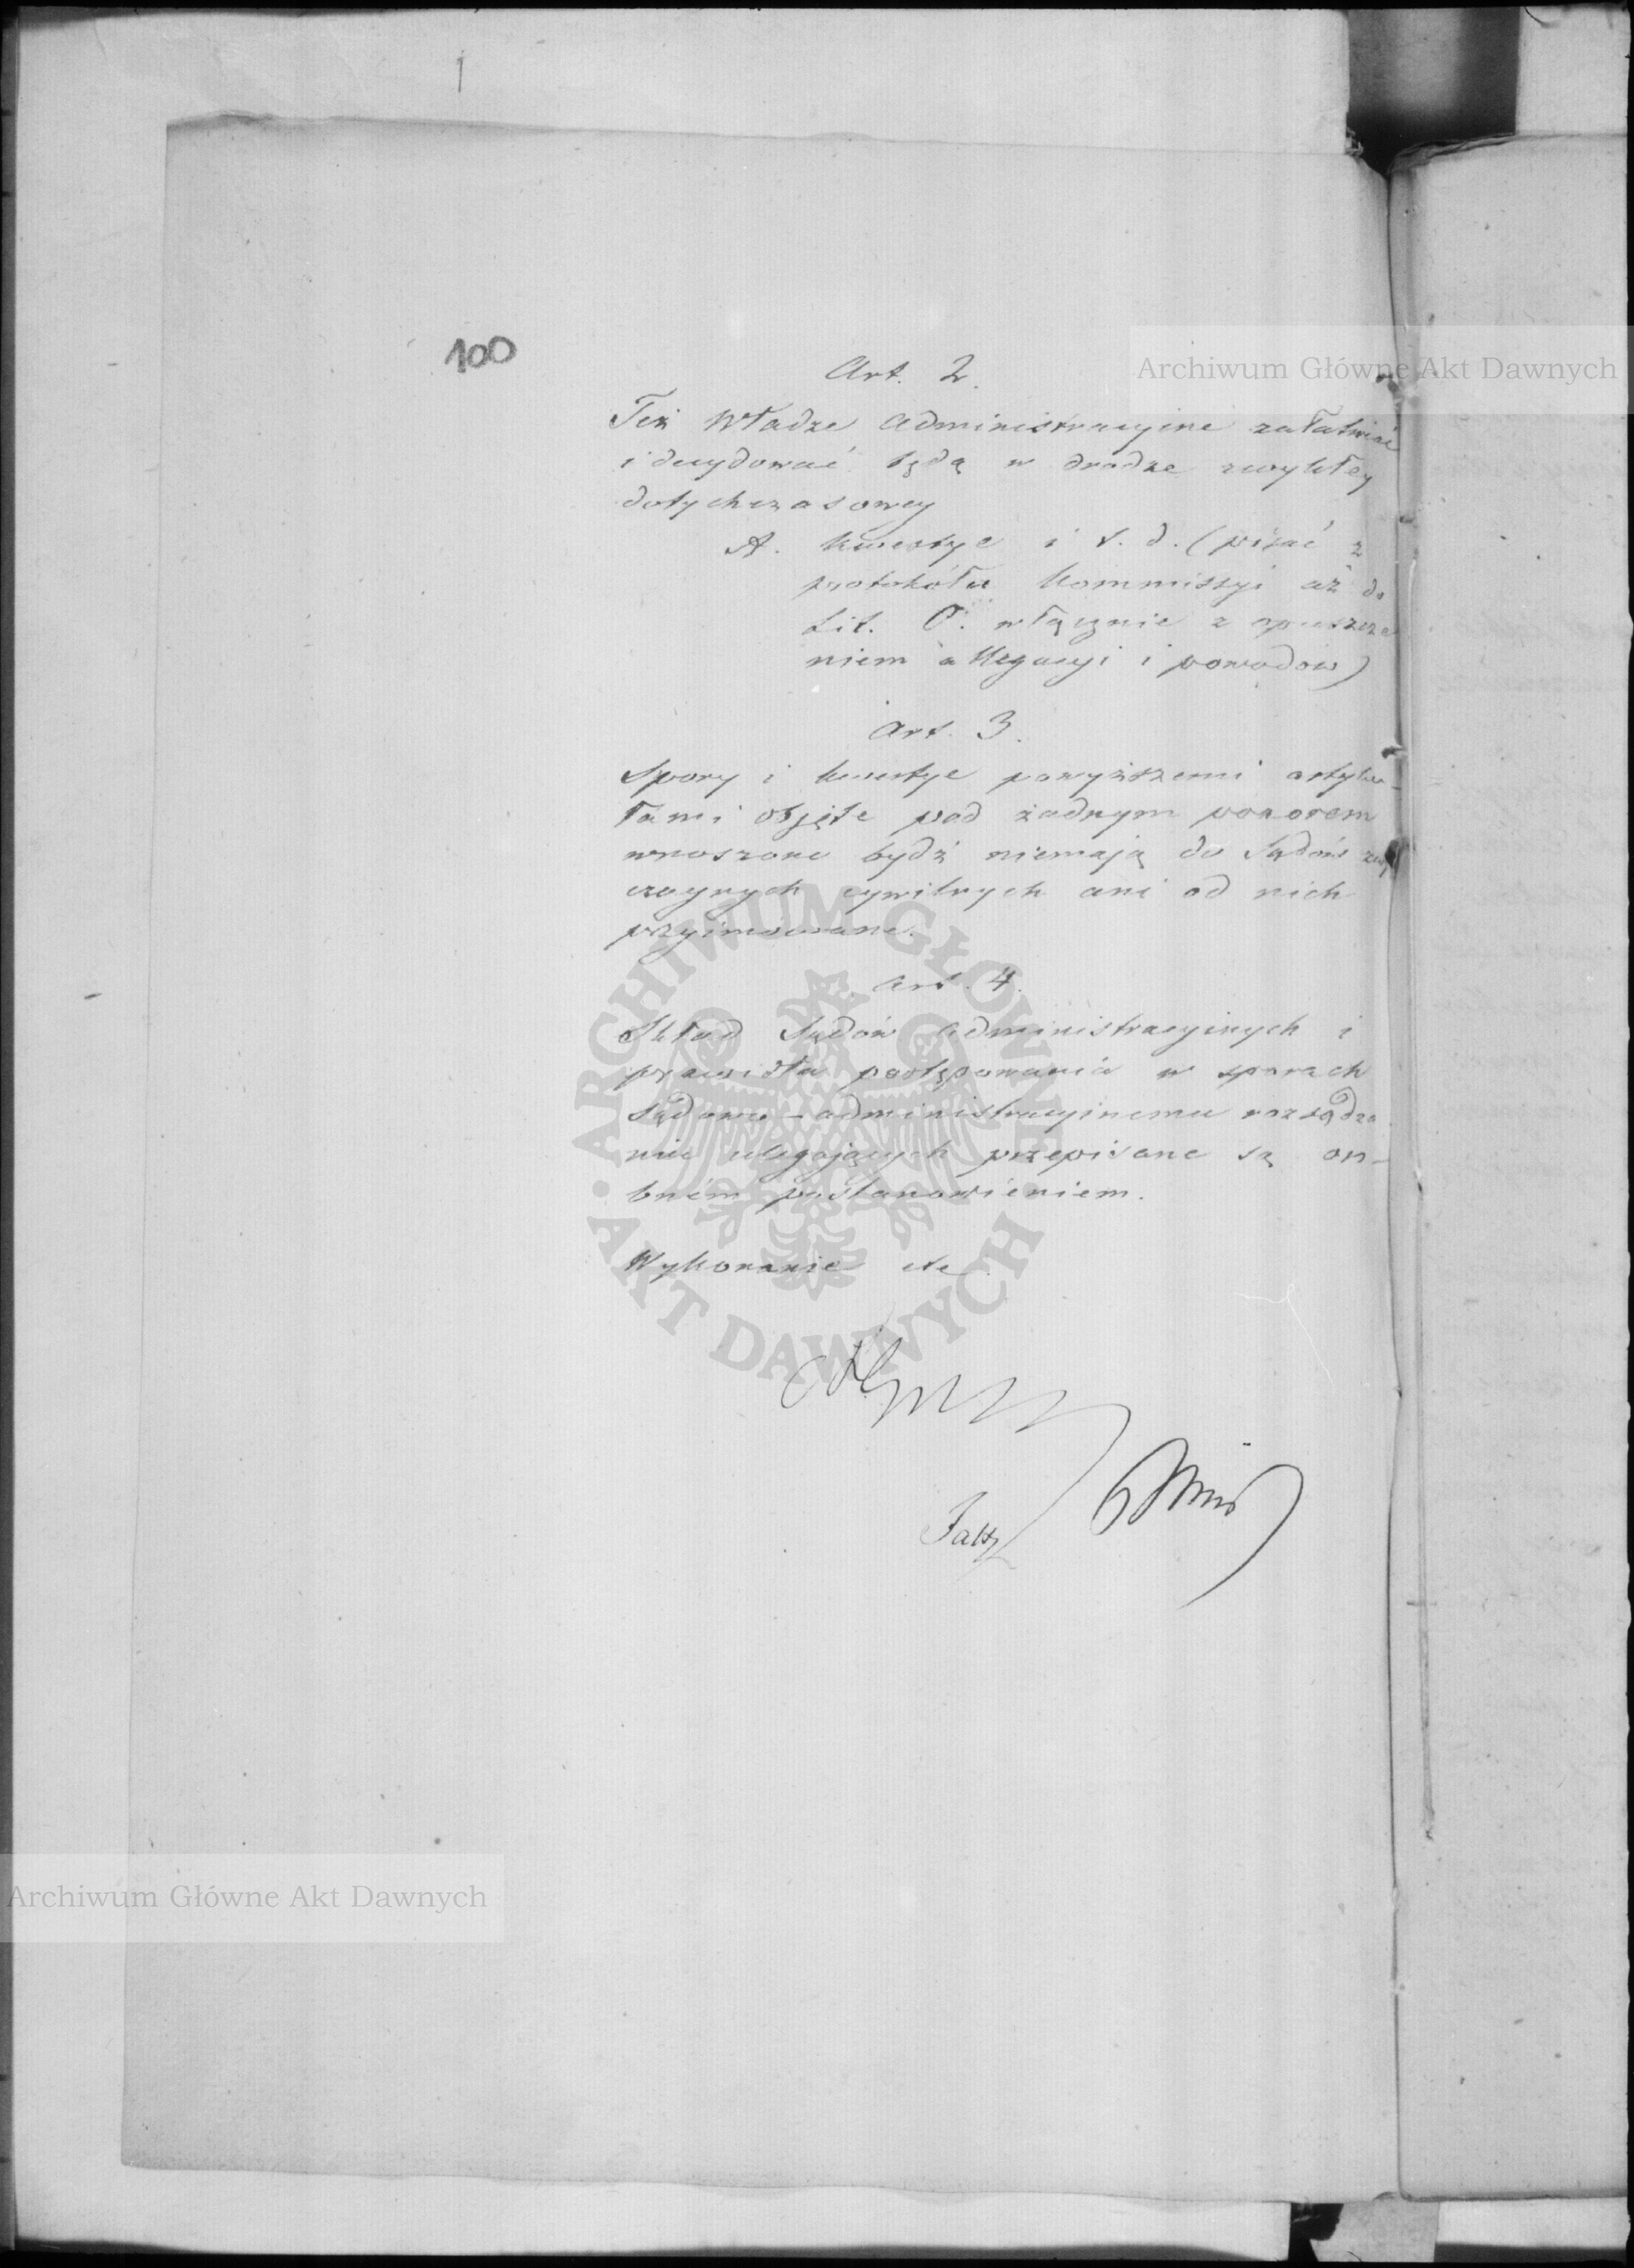 100
Archiwum Główne Akt Dawnych
Art. 2.
Też Władze Administracyine załatwiać
i decydować będą w drodze zwykłey
dotychczasowey
A. kwestye i t. d. (pisać z
protokółu Kommissyi aż do
Lit. C. włącznie z opuszcze
niem allegacyi i powodów)
Art. 3.
Spory i kwestye powyższemi artyku-
łami objęte pod żadnym pozorem
wnoszone bydź niemają do Sądów zwy
czaynych cywilnych ani od nich
przyimowane.
Art. 4.
Skład Sądów Administracyinych i
prawidła postępowania w sporach
Sądowo-administracyinemu rozsądza
niu ulegających przepisane są
postanowieniem.
Wykonanie etc.
ARCHIWUM GŁÓWNE
AKT DAWNYCH
Archiwum Główne Akt Dawnych